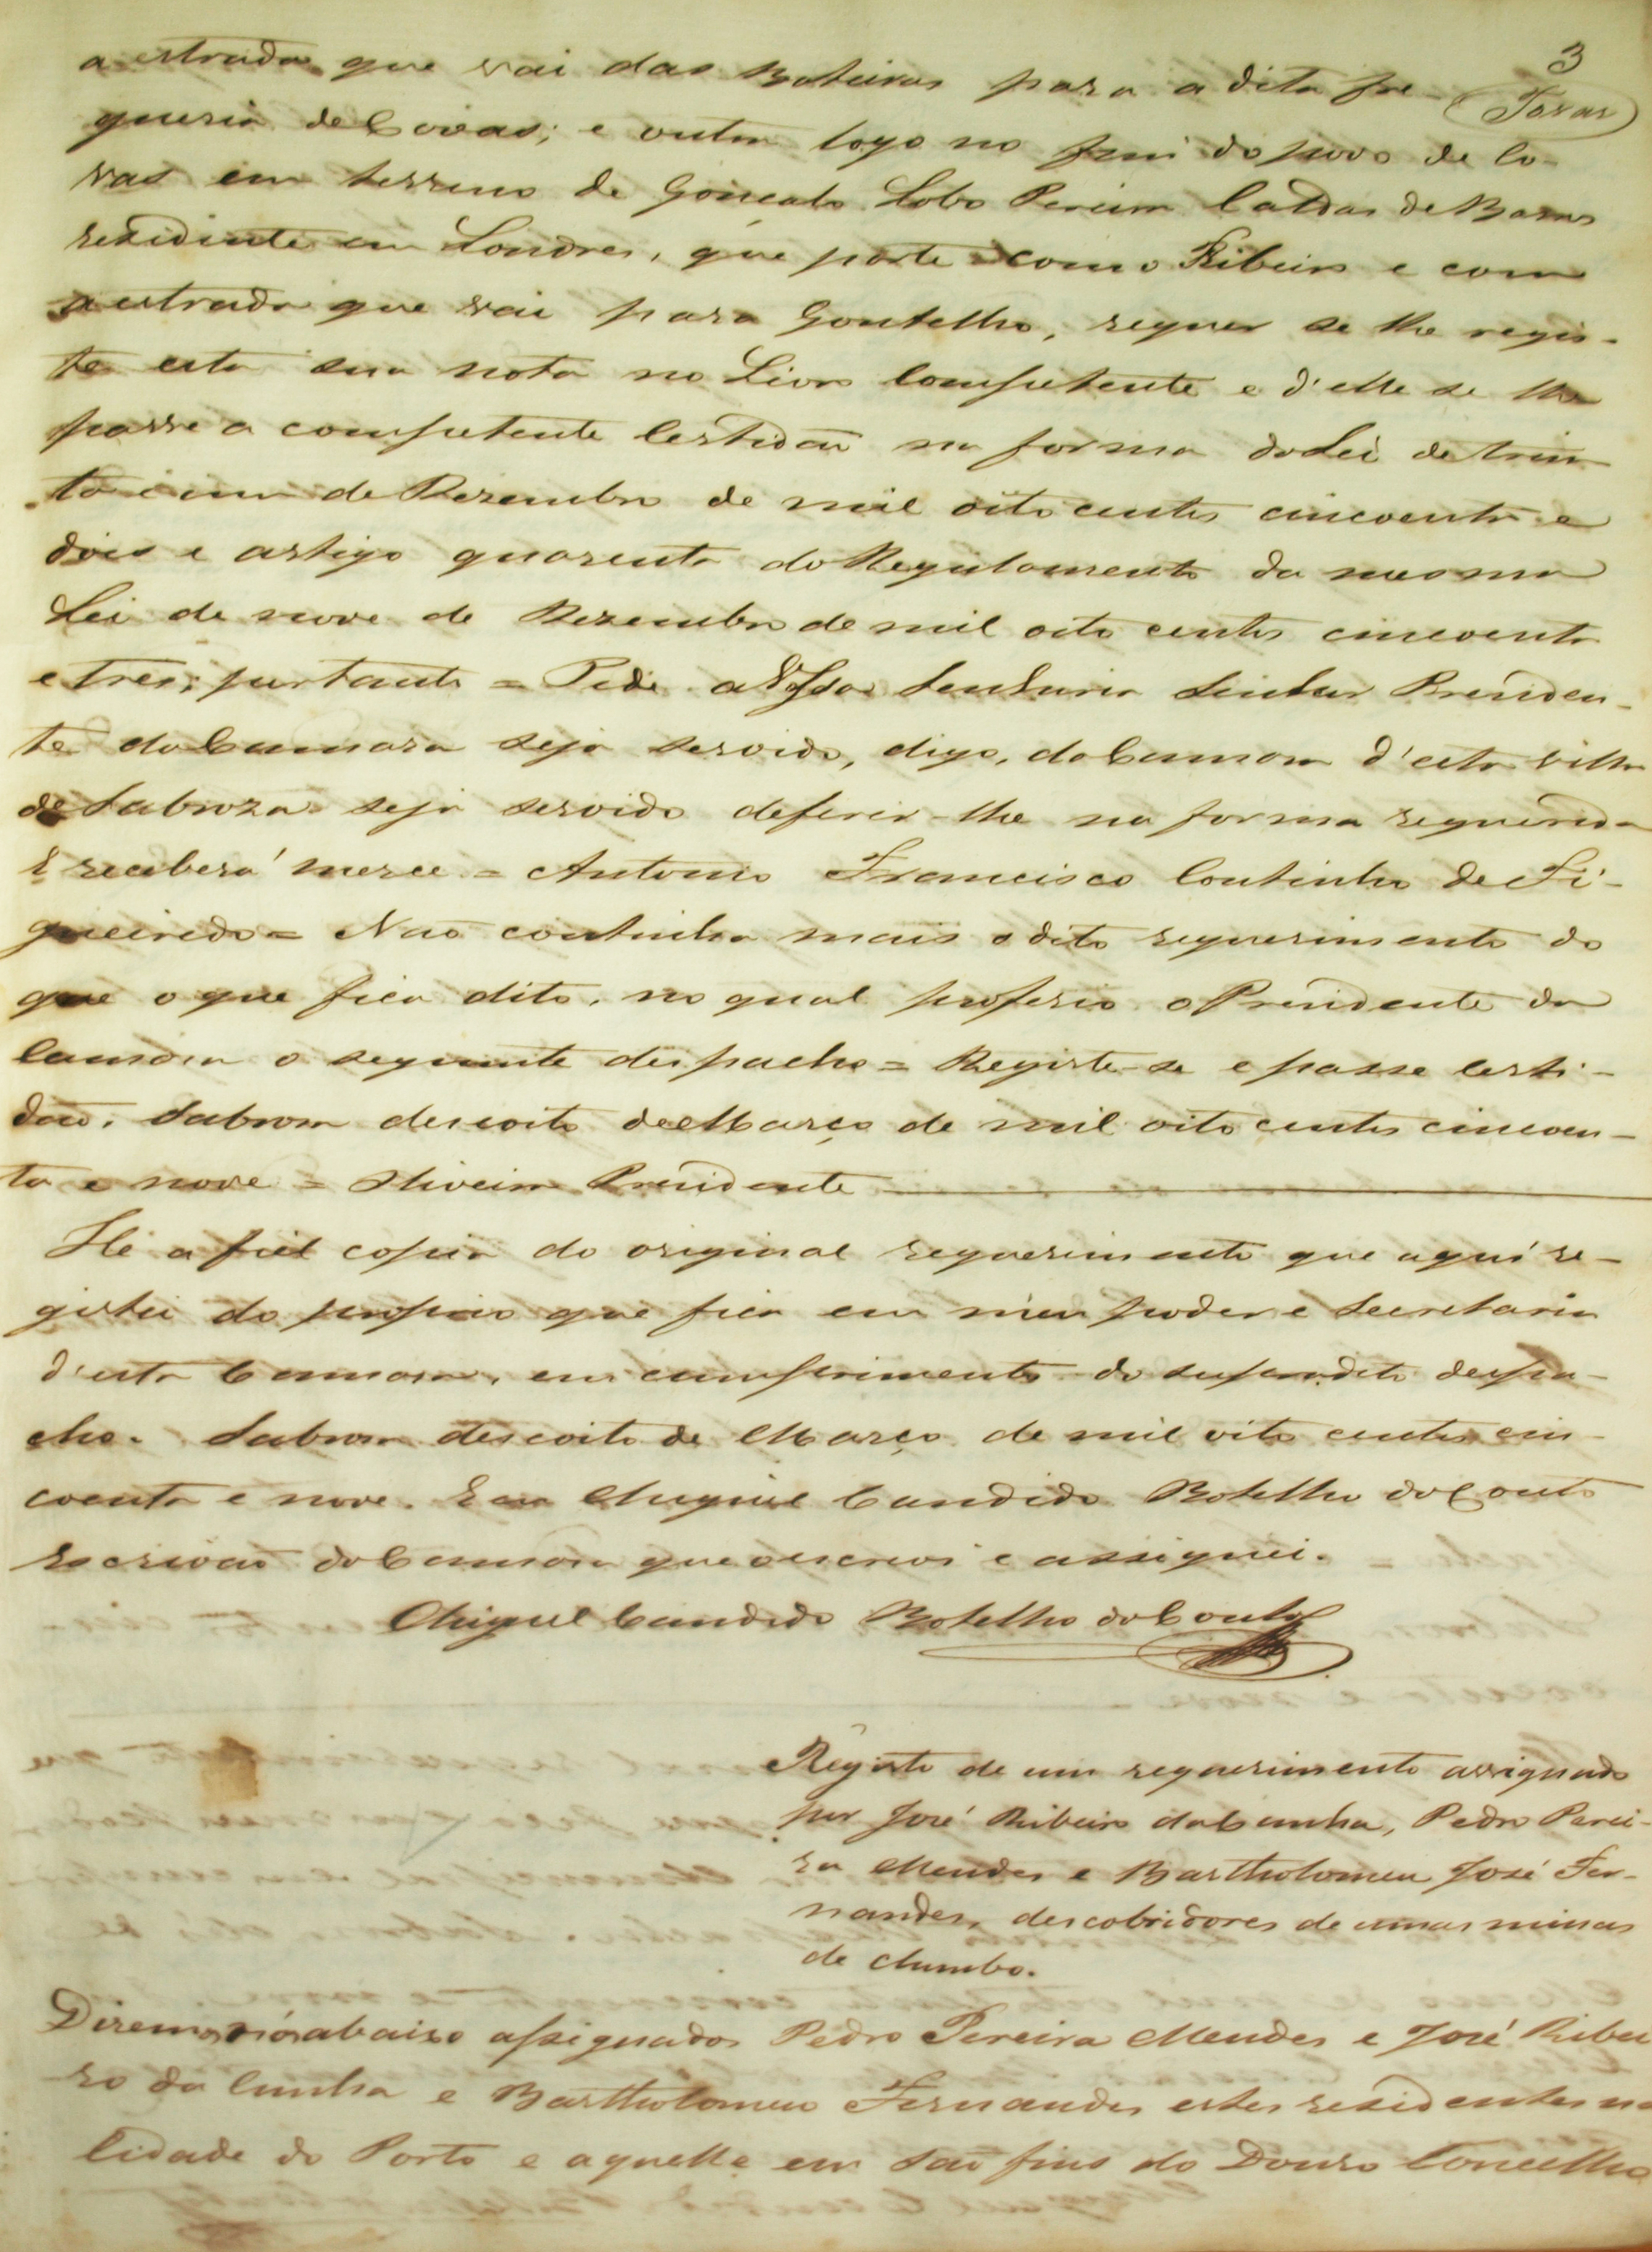 3
Tavar
a estrada que vai das Boteiras para a dita fre-
guesia de Covas; e outra logo no fim do povo de Co-
vas em terreno de Gonçalo Lobo Pereira Caldas de Barros
rezidente em Londres, que parte com o Ribeiro e com
a estrada que vai para Gontelho, requer se lhe regis-
te esta sua nota no Livro Competente e d'elle se lhe
passe a competente Certidaõ na forma da Lei de trin-
ta e um de Dezembro de mil oito centos cincoenta e
dois e artigo quarenta do Regulamento da mesma
Lei de nove de Dezembro de mil oito centos cincoenta
e tres; portanto = Pede a Vossa Senhoria Senhor Presiden-
te da Camara seja servido, digo, da Camara d'esta villa
de Sabroza seja servido deferir-lhe na forma requerida
E receberá merce = Antonio Francisco Coutinho de Fi-
gueiredo = Naõ continha mais o dito requerimento do
que o que fica dito, no qual proferio o Presidente da
Camara o seguinte despacho = Registe-se e passe Certi-
daõ. Sabroza desoito de Março de mil oito centos cincoen-
ta e nove = Oliveira Presidente
He a fiel copia do original requerimento que aqui re-
gistei do proprio que fica em meu poder e Secretaria
d'esta Camara, em cumprimento do supradito despa-
cho. Sabroza desoito de Março de mil oito centos cin-
coenta e nove. E eu Miguel Candido Botelho do Couto
Escrivaõ da Camara que o escrevi e assignei.
Miguel Candido Botelho do Couto
Registo de um requerimento assignado
por José Ribeiro da Cunha, Pedro Perei-
ra Mendes e Bartholomeu José Fer-
nandes, descobridores de umas minas
de chumbo.
Dizemos nós abaixo assignados Pedro Pereira Mendes e José Ribei
ro da Cunha e Bartholomeu Fernandes estes residentes na
Cidade do Porto e aquelle em Saõ fins do Douro Concelho